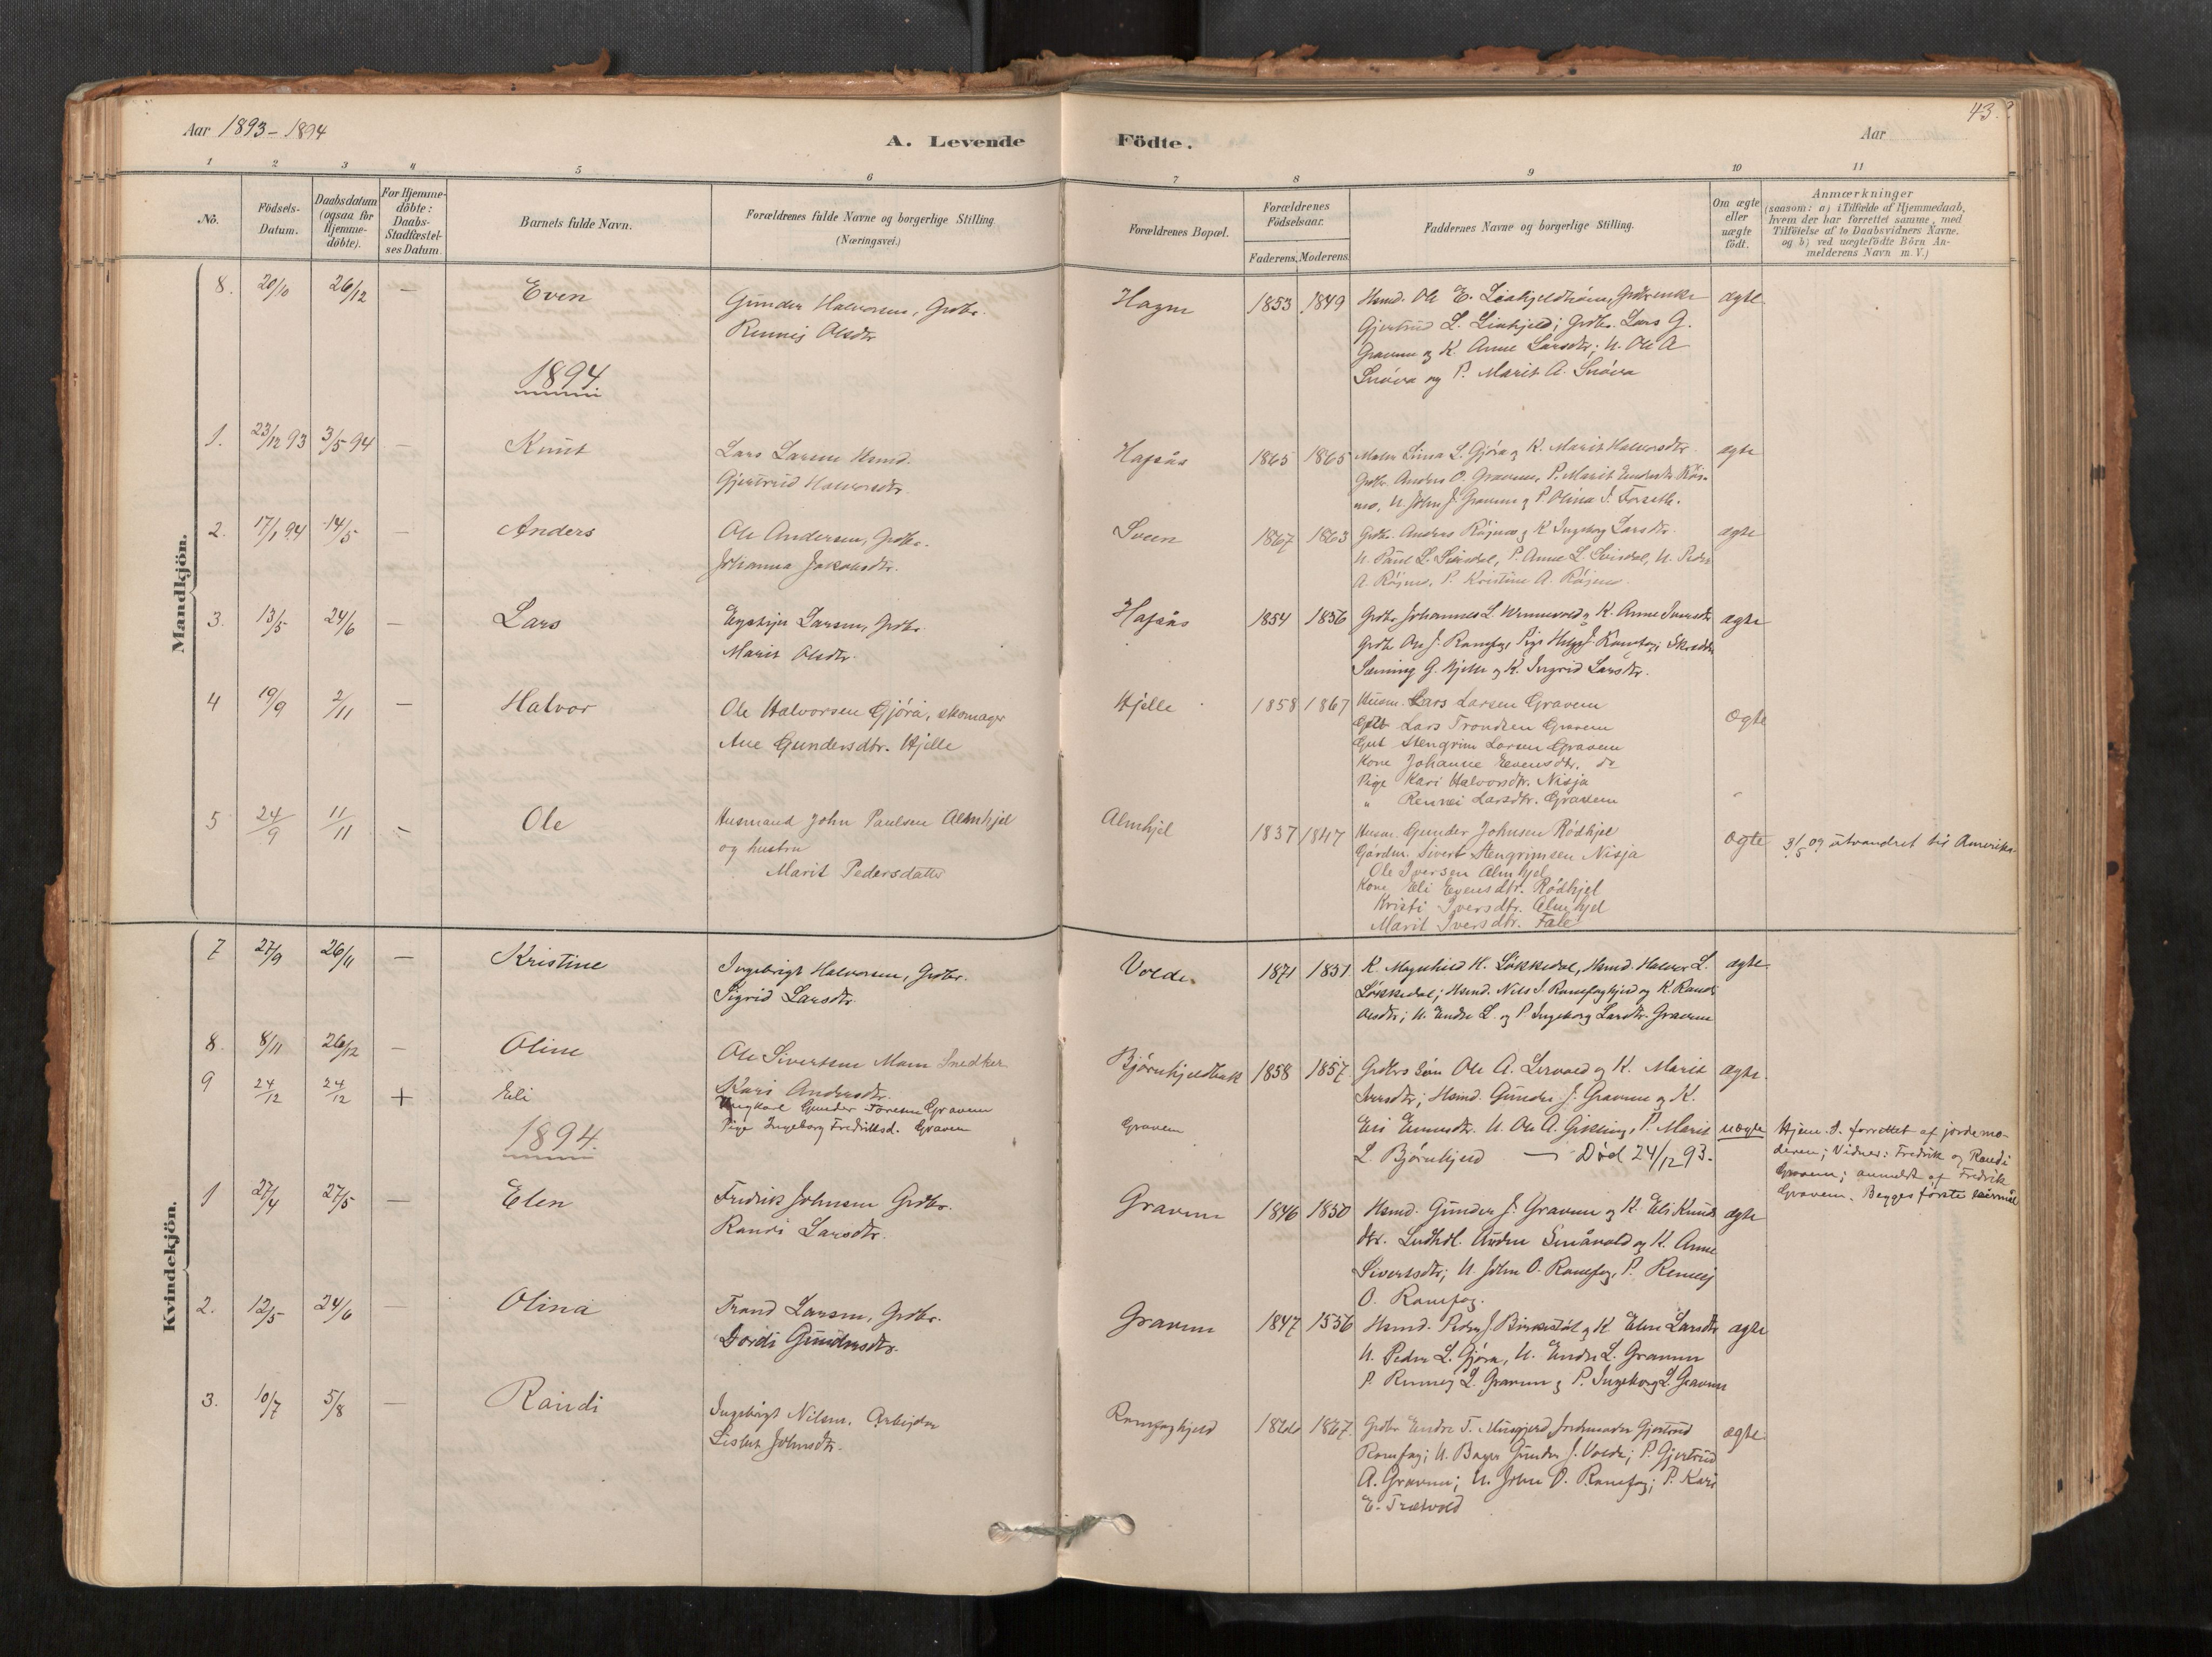 Aar 1893-1894
A. Levende
Födte.
Aar
43.
1 2 3 4 5 6 7 8 9 10 11
No.
Födsels-
Datum.
Daabsdatum
(ogsaa for
Hjemme-
döbte).
For Hjemme-
döbte:
Daabs-
Stadfæstel-
ses Datum.
Barnets fulde Navn.
Forældrenes fulde Navne og borgerlige Stilling
(Næringsvei.)
Forældrenes Bopæl.
Forældrenes
Födselsaar.
Faderens. Moderens.
Faddernes Navne og borgerlige Stilling.
Om ægte
eller
uægte
födt.
Anmærkninger
(saasom: a) i Tilfælde af Hjemmedaab,
hvem der har forrettet samme, med
Tilföielse af to Daabsvidners Navne.
og b) ved uægtefödte Börn An-
melderens Navn m. V.)
Mandkjön.
8. 20/10 26/12 — Even
Gunder Halvorsen, Grdbr.
Rennei Olsdtr
Hagen 1853 1849
Hsmd. Ole E.
Gjertrud L. Liahjeld; Grdbr. Lars G.
Gravem og K. Anne Larsdtr; U. Ole A
Snöva og P. Marit A. Snöva
ægte
1894
1. 23/12 93 3/5 94 — Knut
Lars Larsen Hsmd.
Gjertrud Halvorsdtr.
Hafsås 1865 1865
L. Gjöra og K. Marit Halvorsdtr.
Grdbr. Anders O. Gravem, P. Marit Endresdtr Röi-
mo, U. John J. Gravem og P. Olina J. Forseth.
ægte
2. 17/1 94 14/5 — Anders
Ole Andersen, Grdbr.
Johanna Jakobsdtr.
Sveen 1867 1863
Grdbr. Anders Röjmo og K Ingeborg Larsdtr.
U. Paul L. P. Anne L. U. Peder
A. Röjmo, P. Kristine A. Röjmo.
ægte
3. 13/5 24/6 — Lars
Larsen, Grdbr.
Marit Olsdtr.
Hafsås 1854 1856
Grdbr Johannes L. og K. Anne Iversdtr
Grdb J. Ramfag, Pige J. Ramfag;
G. Hjelle og K. Ingrid Larsdtr.
ægte
4 19/9 2/11 — Halvor
Ole Halvorsen Gjöra, skomager
Ane Gundersdtr. Hjelle
Hjelle 1858 1867
Husm. Lars Larsen Gravem
Lars Trondsen Gravem
Gut Stengrim Larsen Gravem
Kone Johanne Evensdtr. do
Pige Kari Halvorsdtr. Nisja
„ Rennei Larsdtr. Gravem
Ægte
5 24/9 11/11 — Ole
Husmand John Paulsen Almhjel
og hustru
Marit Pedersdatter
Almhjel 1837 1847
Husm. Gunder Johnsen Rödhjel
Gårdm. Sivert Stengrimsen Nisja
Ole Iversen Almhjel
Kone Eli Evensdtr. Rödhjel
Kristi Iversdtr. Almhjel
Marit Iversdtr. Fale
Ægte
3/5 09 utvandret til Amerika.
Kvindekjön.
7 27/9 26/11 — Kristine
Ingebrigt Halvorsen, Grdbr.
Sigrid Larsdtr.
Volden 1871 1851
K. Magnhild H. Løkkedal, Hsmd. Halvor L.
Løkkedal; Hsmd. Nils J. Ramfaghjeld og K. Randi
Olsdtr; U. Endre L. og P Ingeborg Larsdtr. Gravem
ægte
8. 8/11 26/12 — Oline
Ole Sivertsen Moen Snedker
Kari Andersdtr.
Bjørnhjeldbak 1858 1857
Grdbrs Sön Ole A. Lervold og K. Marit
Hsmd. Gunder J. Gravem og K.
Eli U. Ole A. Gikling, P. Marit
L. Bjørnhjeld
ægte
9 24/12 24/12 + Eli
Ungkarl Gunder Toresen Gravem
Pige Ingeborg Fredriksd. Gravem
Gravem
— Död 24/12 93.
uægte
Hjem. d. forrettet af jordemo-
deren; Vidner: Fredrik og Randi
Gravem; anmeldt af Fredrik
Gravem. Begges første leiermål
1894.
1 27/4 27/5 — Elen
Fredrik Johnsen Grdbr.
Randi Larsdtr.
Gravem 1846 1850
Hsmd. Gunder J. Gravem og K. Eli Knuds
dtr. Smågvold og K. Anne
Sivertsdtr; U. John O. Ramfag, P. Rennej
O. Ramfag.
ægte
2. 12/5 24/6 — Olina
Trond Larsen, Grdbr.
Dordi Gundersdtr.
Gravem 1847 1856
Hsmd. Peder J. og K Elen Larsdtr
U. Peder L. Gjöra, U. Endre L. Gravem
P. Rennej L. Gravem og P. Ingeborg L. Gravem
ægte
3. 10/7 5/8 — Randi
Ingebrigt Nilsen. Arbejder
Lisbet Johnsdtr.
Ramfaghjeld 1867.
Grdbr Endre T. Jordemoder Gjertrud
Ramfag; U. Gunder J. Volden; P. Gjertrud
A. Gravem; U. John O. Ramfag; P. Kari
E. Trætvold
ægte.